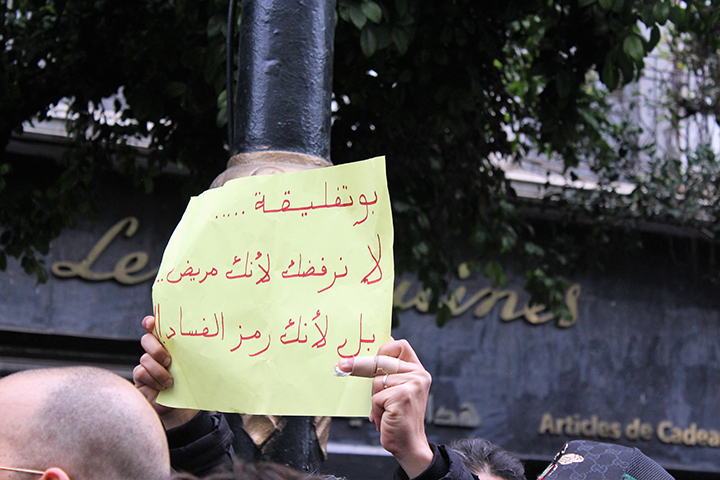 بوتفليقة .....
لا نرفضك لأنك مريض..
بل لأنك رمز الفساد!!
Le
sines
هدايا
Articles de Cadea